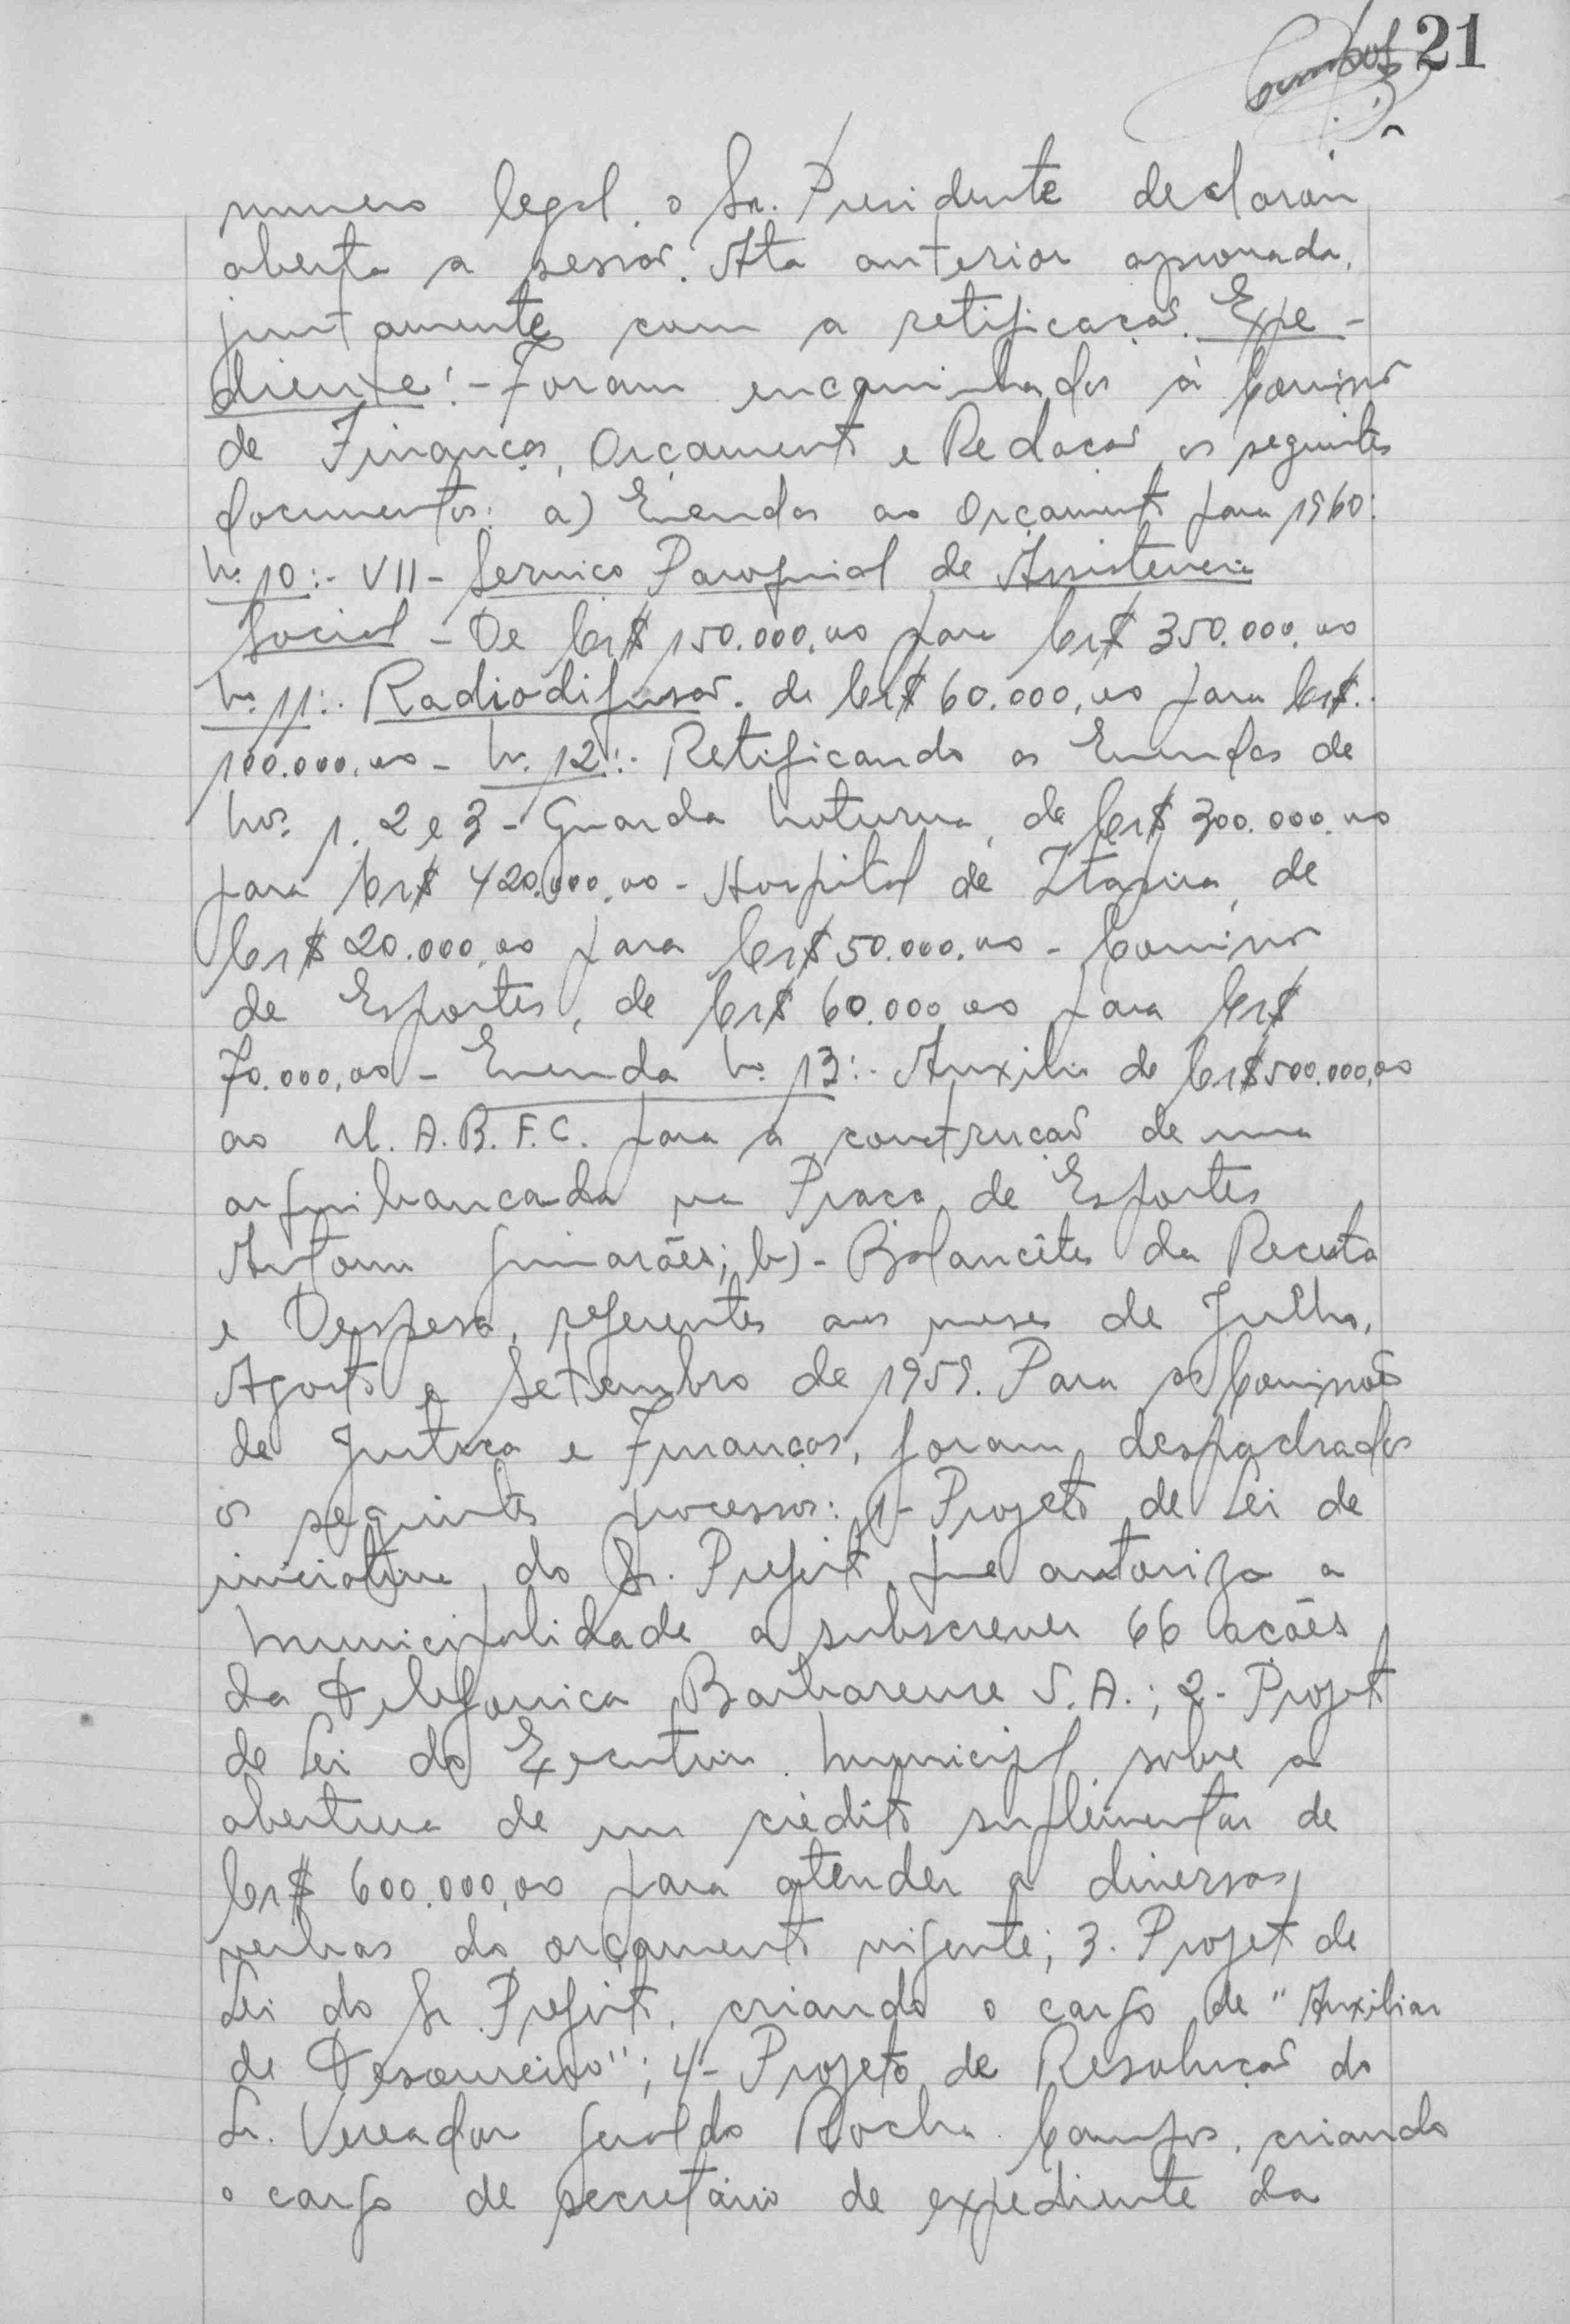 21
numero legal, o Sr. Presidente declarou
aberta a sessão. Ata anterior aprovada,
juntamente com a retificação. Expe-
diente:- Foram encaminhados à Comissão
de Finanças, Orçamento e Redação, os seguintes
documentos: a) Emendas ao Orçamento para 1960:
Nº 10:- VII - Serviço Paroquial de Assistencia
Social - De Cr$ 150.000,00 para Cr$ 350.000,00
Nº 11:- Radiodifusão. de Cr$ 60.000,00 para Cr$.
100.000,00 - Nº 12:- Retificando as Emendas de
Nos. 1, 2 e 3 - Guarda Noturna, de Cr$ 300.000,00
para Cr$ 420.000,00 - Hospital de Itapira, de
Cr$ 20.000,00 para Cr$ 50.000,00 - Comissão
de Esportes, de Cr$ 60.000,00 para Cr$
70.000,00 - Emenda Nº 13:- Auxilio de Cr$ 500.000,00
ao U. A. B. F. C. para a construção de uma
arquibancada na Praça de Esportes
Antonio Guimarães; b) - Balancêtes da Receita
e Despesa, referentes aos meses de Julho,
Agosto e Setembro de 1959. Para as Comissões
de Justiça e Finanças, foram despachados
os seguintes processos: 1 - Projeto de Lei de
iniciativa do Sr. Prefeito, que autoriza a
Municipalidade a subscrever 66 ações
da Telefonica Barbarense S. A.; 2 - Projeto
de Lei do Executivo Municipal, sobre a
abertura de um crédito suplementar de
Cr$ 600.000,00 para atender a diversas
verbas do orçamento vigente; 3 - Projeto de
Lei do Sr. Prefeito, criando o cargo de "Auxiliar
de Tesoureiro"; 4 - Projeto de Resolução do
Sr. Vereador Geraldo Rocha Campos, criando
o cargo de secretário de expediente da